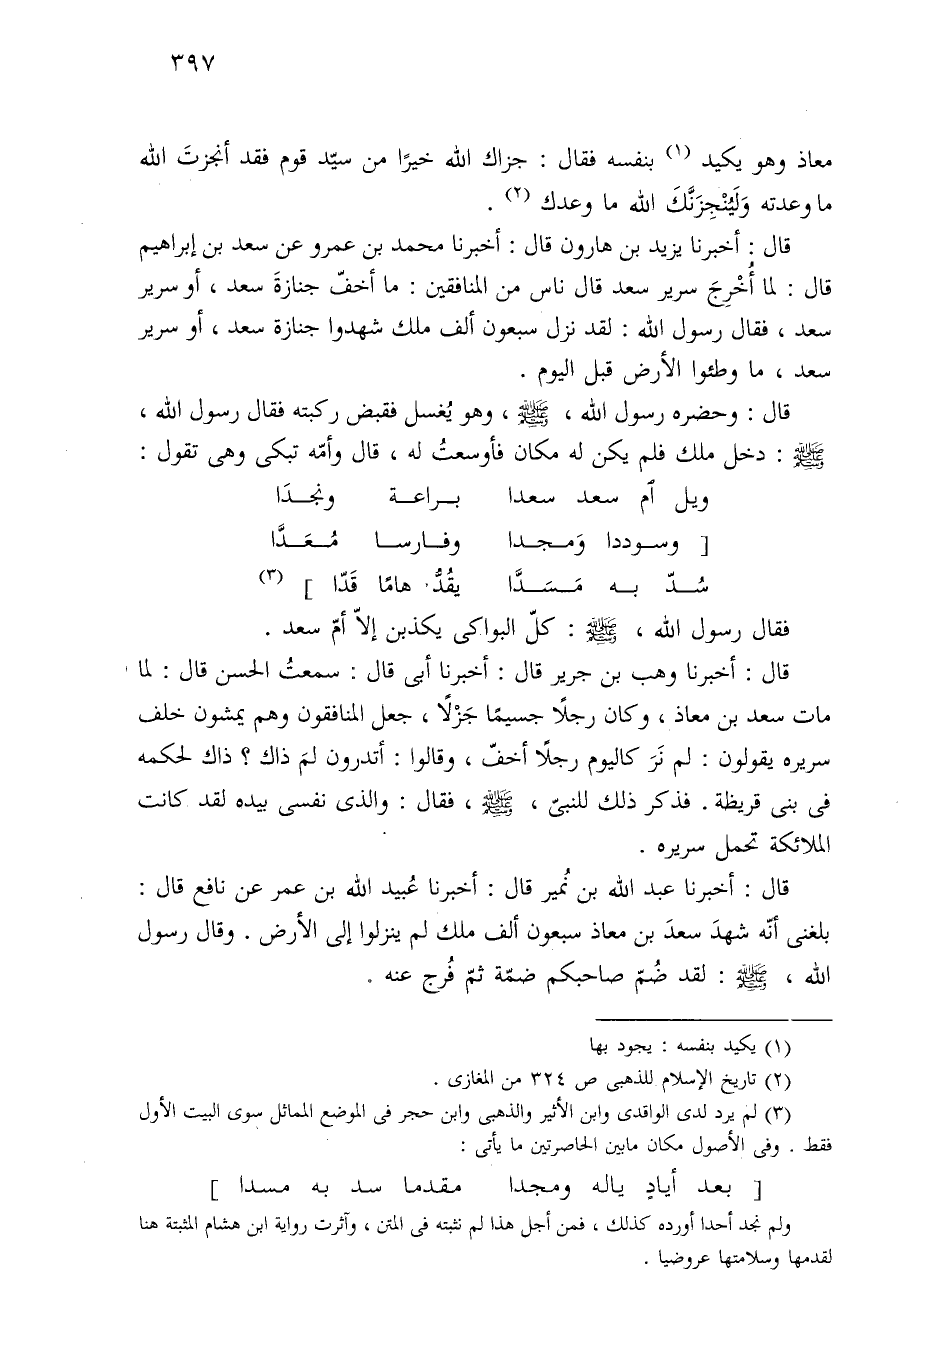 ٣٩٧
معاذ وهو يكيد (١) بنفسه فقال : جزاك الله خيرًا من سيّد قوم فقد أنجزتَ الله
ما وعدته وَلَيُنْجِزَنَّكَ الله ما وعدك (٢) .
قال : أخبرنا يزيد بن هارون قال : أخبرنا محمد بن عمرو عن سعد بن إبراهيم
قال : لما أُخْرِجَ سرير سعد قال ناس من المنافقين : ما أخفّ جنازةَ سعد ، أو سرير
سعد ، فقال رسول الله : لقد نزل سبعون ألف ملك شهدوا جنازة سعد ، أو سرير
سعد ، ما وطئوا الأرض قبل اليوم .
قال : وحضره رسول الله ، ﷺ ، وهو يُغسل فقبض ركبته فقال رسول الله ،
ﷺ : دخل ملك فلم يكن له مكان فأوسعتُ له ، قال وأمّه تبكى وهى تقول :
ويل أم سعد سعدا براعة ونجدَا
[ وسوددا وَمجدا وفارسا مُعَدَّا
سُدّ به مَسَدَّا يقُدُّ هامًا قَدّا ] (٣)
فقال رسول الله ، ﷺ : كلّ البواكى يكذبن إلاّ أمّ سعد .
قال : أخبرنا وهب بن جرير قال : أخبرنا أبى قال : سمعتُ الحسن قال : لما
مات سعد بن معاذ ، وكان رجلًا جسيمًا جَزْلًا ، جعل المنافقون وهم يمشون خلف
سريره يقولون : لم نَرَ كاليوم رجلًا أخفّ ، وقالوا : أتدرون لمَ ذاك ؟ ذاك لحكمه
فى بنى قريظة . فذكر ذلك للنبىّ ، ﷺ ، فقال : والذى نفسى بيده لقد كانت
الملائكة تحمل سريره .
قال : أخبرنا عبد الله بن نُمير قال : أخبرنا عُبيد الله بن عمر عن نافع قال :
بلغنى أنّه شهدَ سعدَ بن معاذ سبعون ألف ملك لم ينزلوا إلى الأرض . وقال رسول
الله ، ﷺ : لقد ضُمّ صاحبكم ضمّة ثمّ فُرج عنه .
(١) يكيد بنفسه : يجود بها
(٢) تاريخ الإسلام للذهبى ص ٣٢٤ من المغازى .
(٣) لم يرد لدى الواقدى وابن الأثير والذهبى وابن حجر فى الموضع المماثل سوى البيت الأول
فقط . وفى الأصول مكان مابين الحاصرتين ما يأتى :
[ بعد أيادٍ ياله ومجدا مقدما سد به مسدا ]
ولم نجد أحدا أورده كذلك ، فمن أجل هذا لم نثبته فى المتن ، وآثرت رواية ابن هشام المثبتة هنا
لقدمها وسلامتها عروضيا .